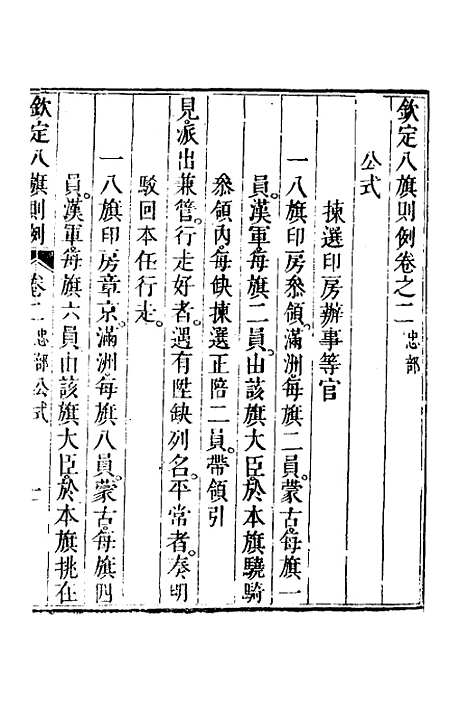 欽定八旗則例卷之二 忠部
公式
揀選印房辦事等官
一八旗印房叅領滿洲每旗二員蒙古每旗一
員漢軍每旗二員由該旗大臣於本旗驍騎
叅領內每缺揀選正陪二員帶領引
見派出兼管行走好者遇有陞缺列名平常者奏明
駁回本任行走
一八旗印房章京滿洲每旗八員蒙古每旗四
員漢軍每旗六員由該旗大臣於本旗挑在
欽定八旗則例 卷二 忠部公式 一